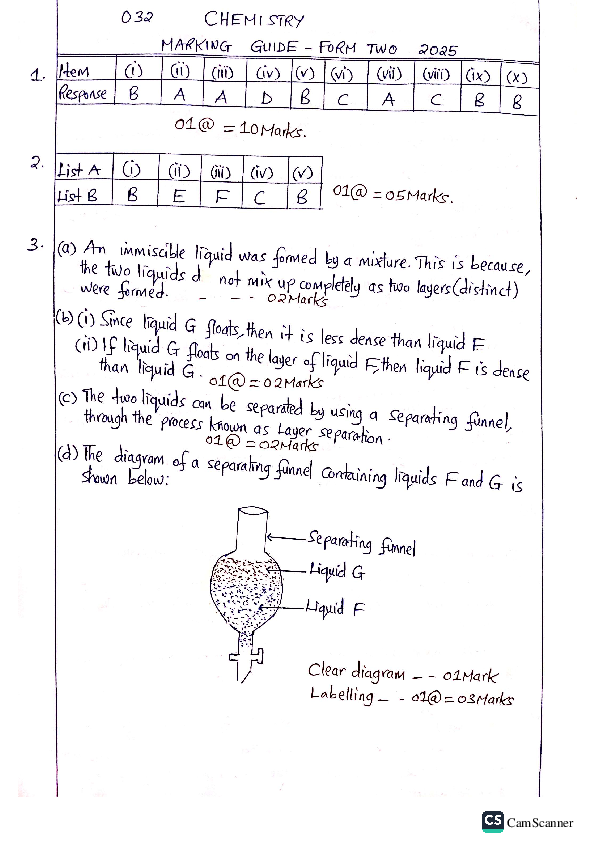 032 CHEMISTRY
MARKING GUIDE - FORM TWO 2025
1. Item (i) (ii) (iii) (iv) (v) (vi) (vii) (viii) (ix) (x)
Response B A A D B C A C B B
01@ = 10Marks.
2. List A (i) (ii) (iii) (iv) (v)
List B B E F C B 01@ = 05Marks.
3. (a) An immiscible liquid was formed by a mixture. This is because,
the two liquids d not mix up completely as two layers (distinct)
were formed. - - - 02Marks
(b) (i) Since liquid G floats, then it is less dense than liquid F
(ii) If liquid G floats on the layer of liquid F, then liquid F is dense
than liquid G. 01@ = 02Marks
(c) The two liquids can be separated by using a separating funnel,
through the process known as Layer separation.
01@ = 02Marks
(d) The diagram of a separating funnel containing liquids F and G is
shown below:
Separating funnel
Liquid G
Liquid F
Clear diagram - - 01Mark
Labelling - - 01@ = 03Marks
CS CamScanner